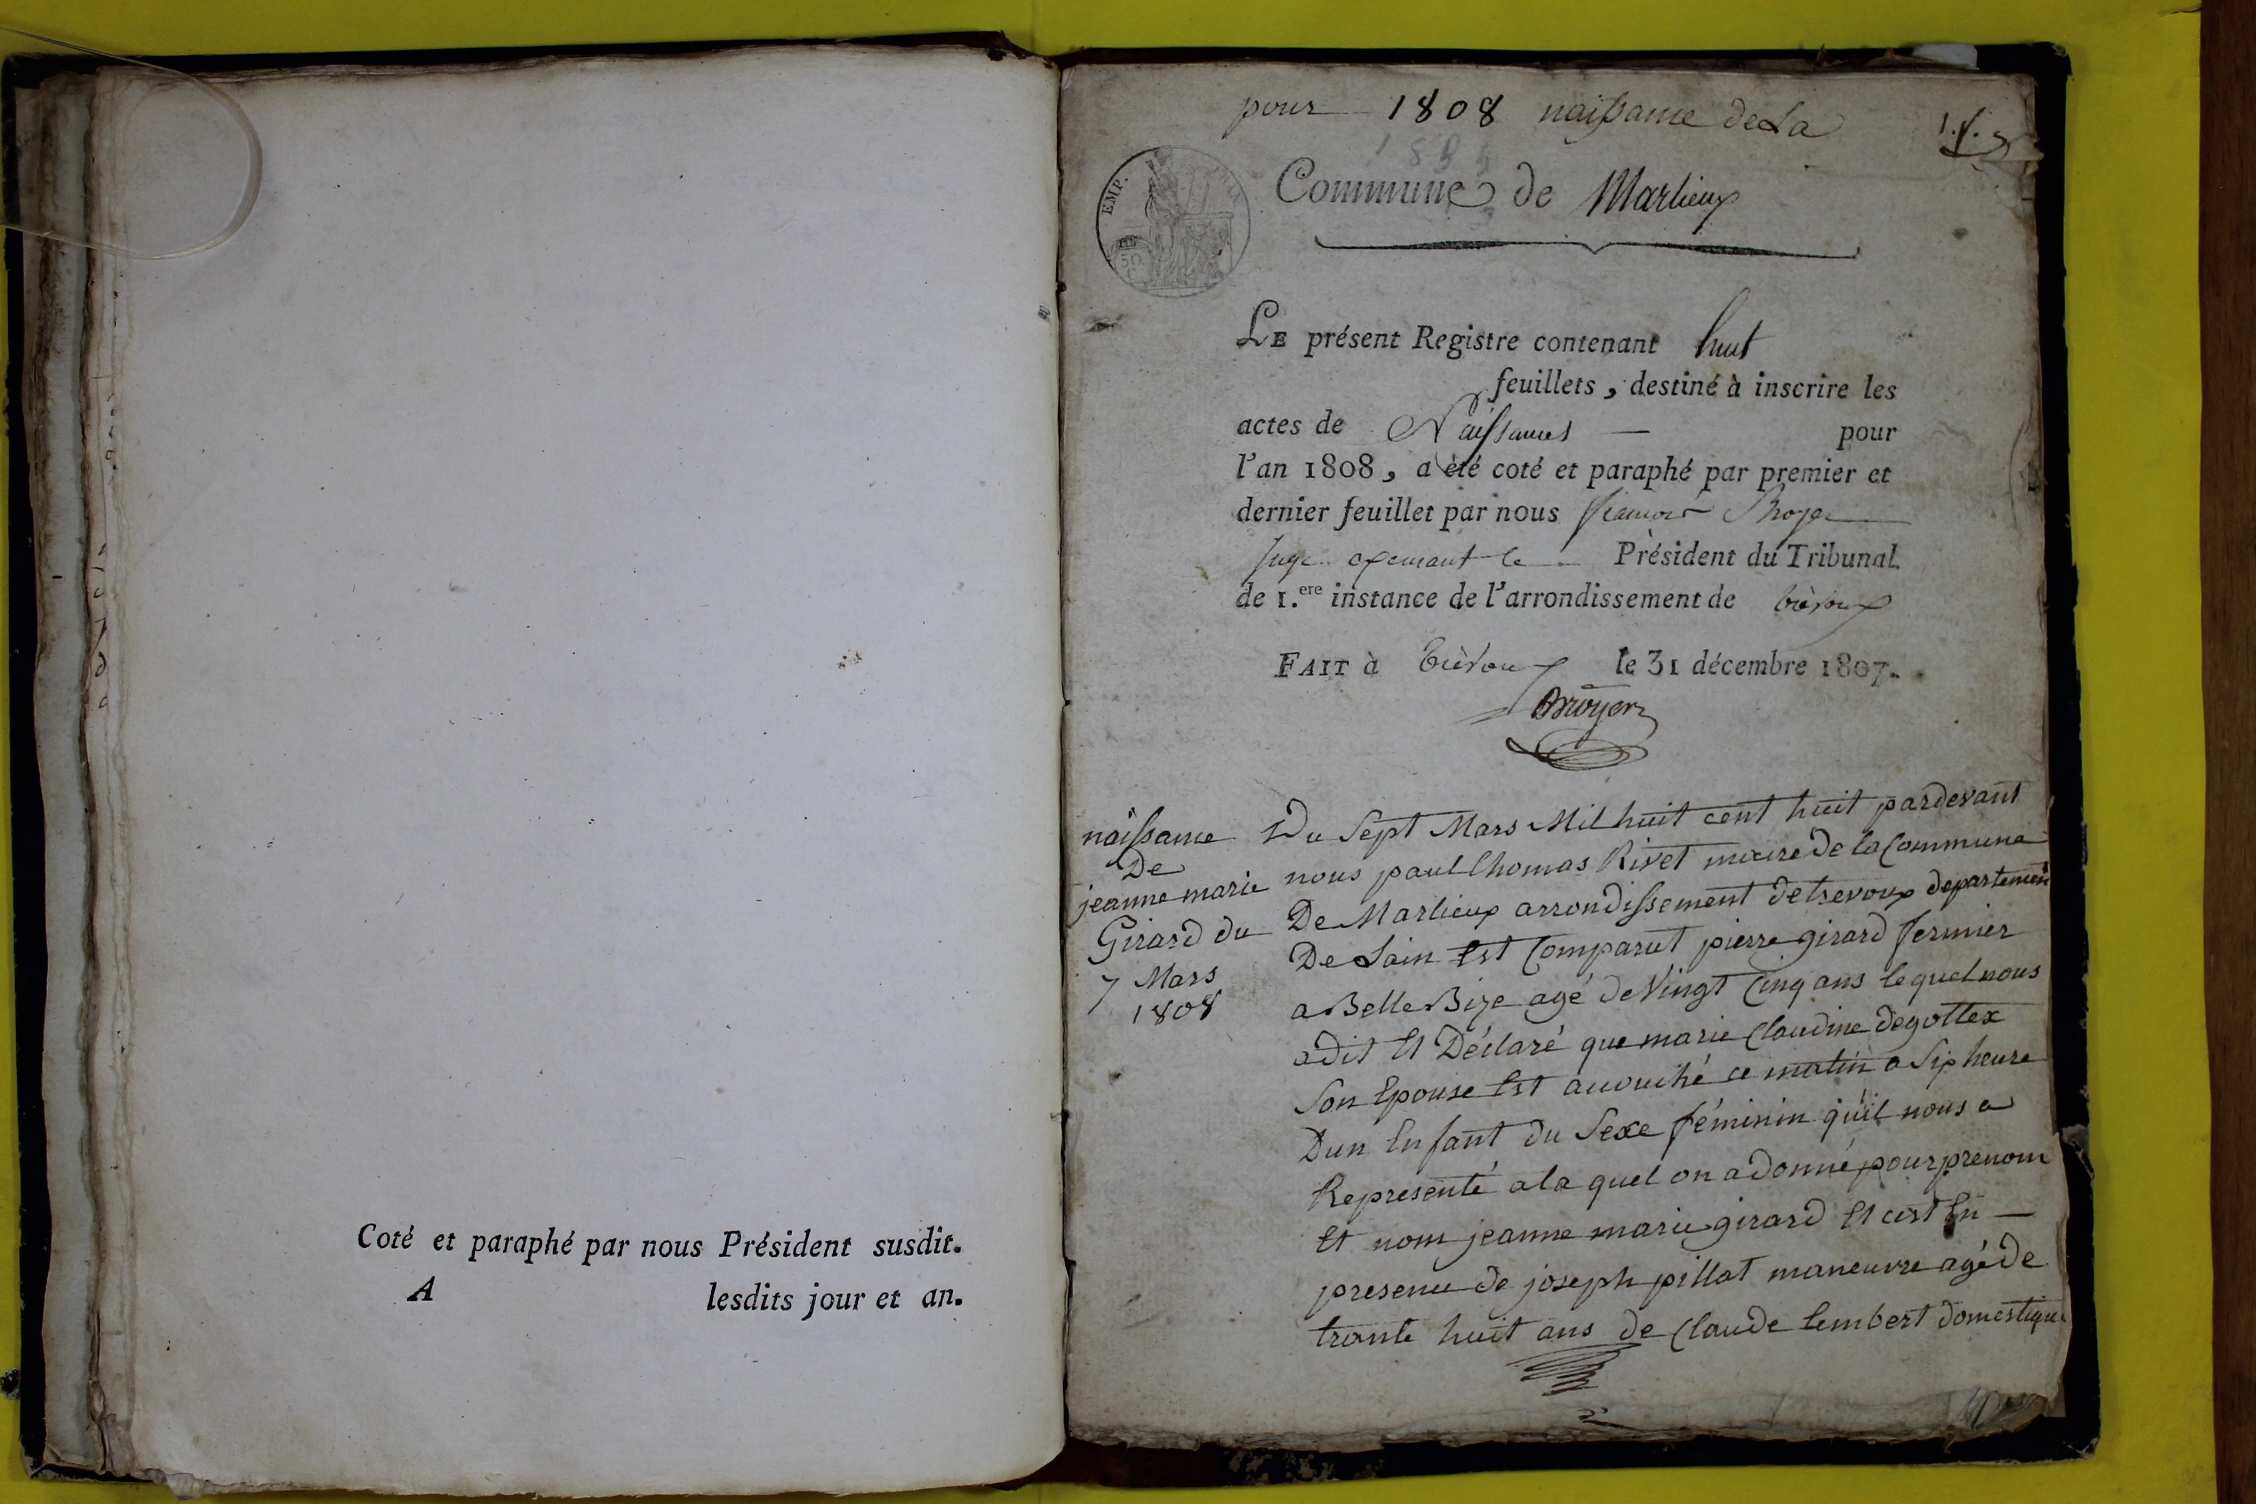 Coté et paraphé par nous Président susdit.
A lesdits jour et an.
pour 1808 naissance dela
1.
EMP.
Commune de Marlieux
LE présent Registre contenant huit
feuillets, destiné à inscrire les
actes de Naissances — pour
l'an 1808, a été coté et paraphé par premier et
dernier feuillet par nous francois Broyer
Juge exerceant le Président du Tribunal
de 1.ere instance de l'arrondissement de trèvoux
FAIT à trèvoux le 31 décembre 1807.
Broyer
naissance
De
jeanne marie
Girard du
7 Mars
1808
Du Sept Mars Mil huit cent huit pardevant
nous paul thomas Rivet maire de la Commune
De Marlieux arrondissement detrevoux departement
De Lain Est Comparut pierre girard fermier
a Belle Bize agé de Vingt Cinq ans lequel nous
adit Et Déclaré que marie Claudine degottex
Son Epouse Est accouché ce matin a Six heure
Dun Enfant du Sexe féminin qu'il nous a
Representé ala quel on adonné pour prenom
Et nom jeanne marie girard Et cest En —
presence de joseph pillot maneuvre agé de
trante huit ans de Claude lembert domestique